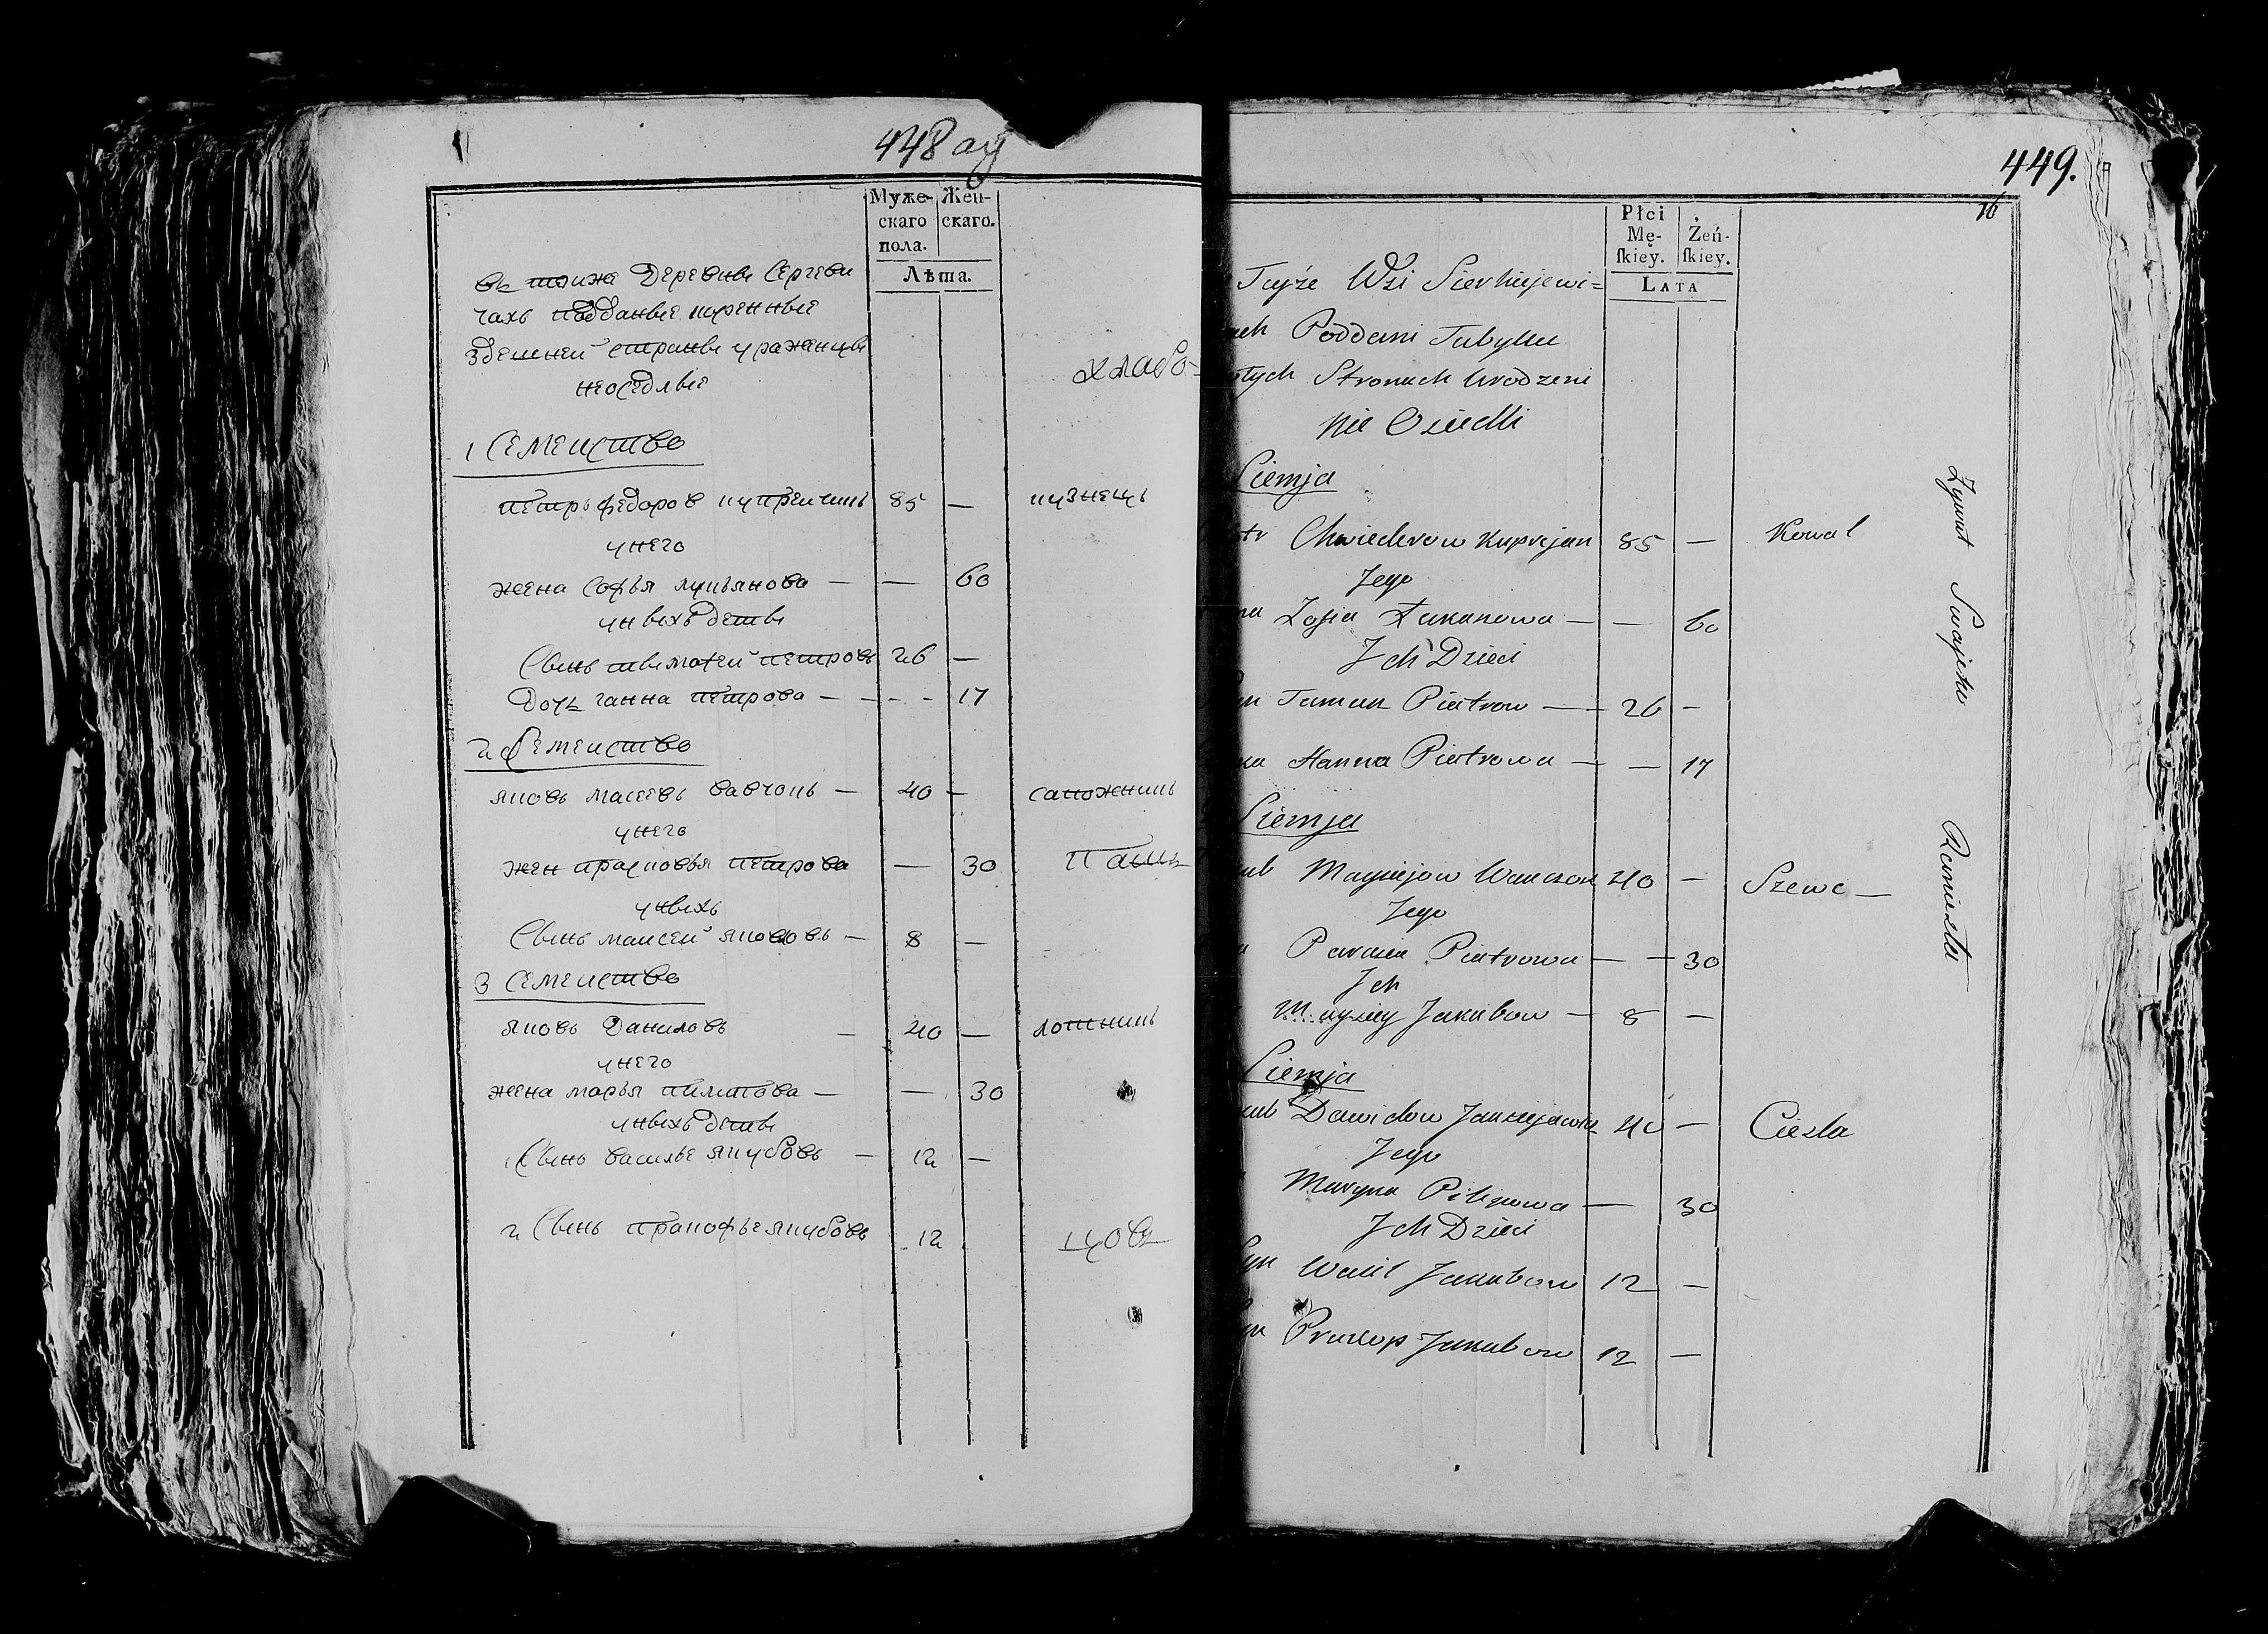 448 об
Муже-
скаго
пола.
Жен-
скаго.
Лѣта.
въ тоиже Деревнѣ Сергеви
чахъ подданые коренные
здешней страны ураженцы
неоседлые
хлабо-
1 Семейство
петръ федоров купреичикъ 85 — кузнецъ
у него
жена софья лукьянова — — 60
у ныхъ дети
сынъ тимотей петровъ 26 —
дочь ганна петрова — — 17
2 Семейство
яковъ масеевъ вавчокъ — 40 — сапожникъ
у него
жен прасковья петрова — 30
у ныхъ
сынъ маисей якововъ — 8 —
3 Семейство
яковъ Даниловъ — 40 —
у него
жена марья пилипова — — 30
у ныхъ дети
сынъ василье якубовъ — 12 —
2 сынъ пракофье якубовъ 12
449.
16
Płci
Mę-
skiey.
Żeń-
skiey.
LATA
Teyże Wsi Sierhiejewi=
ach Poddani Tubylcy
w tych Stronach Urodzeni
Nie Osiedli
Siemja
tr Chwiederow Kuprejan 85 — Kowal
Jego
na Zofia Łukanowa — — 60
Jch Dzieci
yn Taman Piatrow — 26 —
ka Hanna Piotrowa — — 17
Siemja
kub Maysiejow Wauczok 40 — Szewc —
Jego
a Parasia Piatrowa — — 30
Jch
Maysiey Jakubow — 8 —
Siemja
kub Dawidow 40 — Ciesla
Jego
Maryna Pilipowa — 30
Jch Dzieci
Syn Wasil Jakubow 12 —
yn Prakop Jakubow 12 —
Rzemiesła